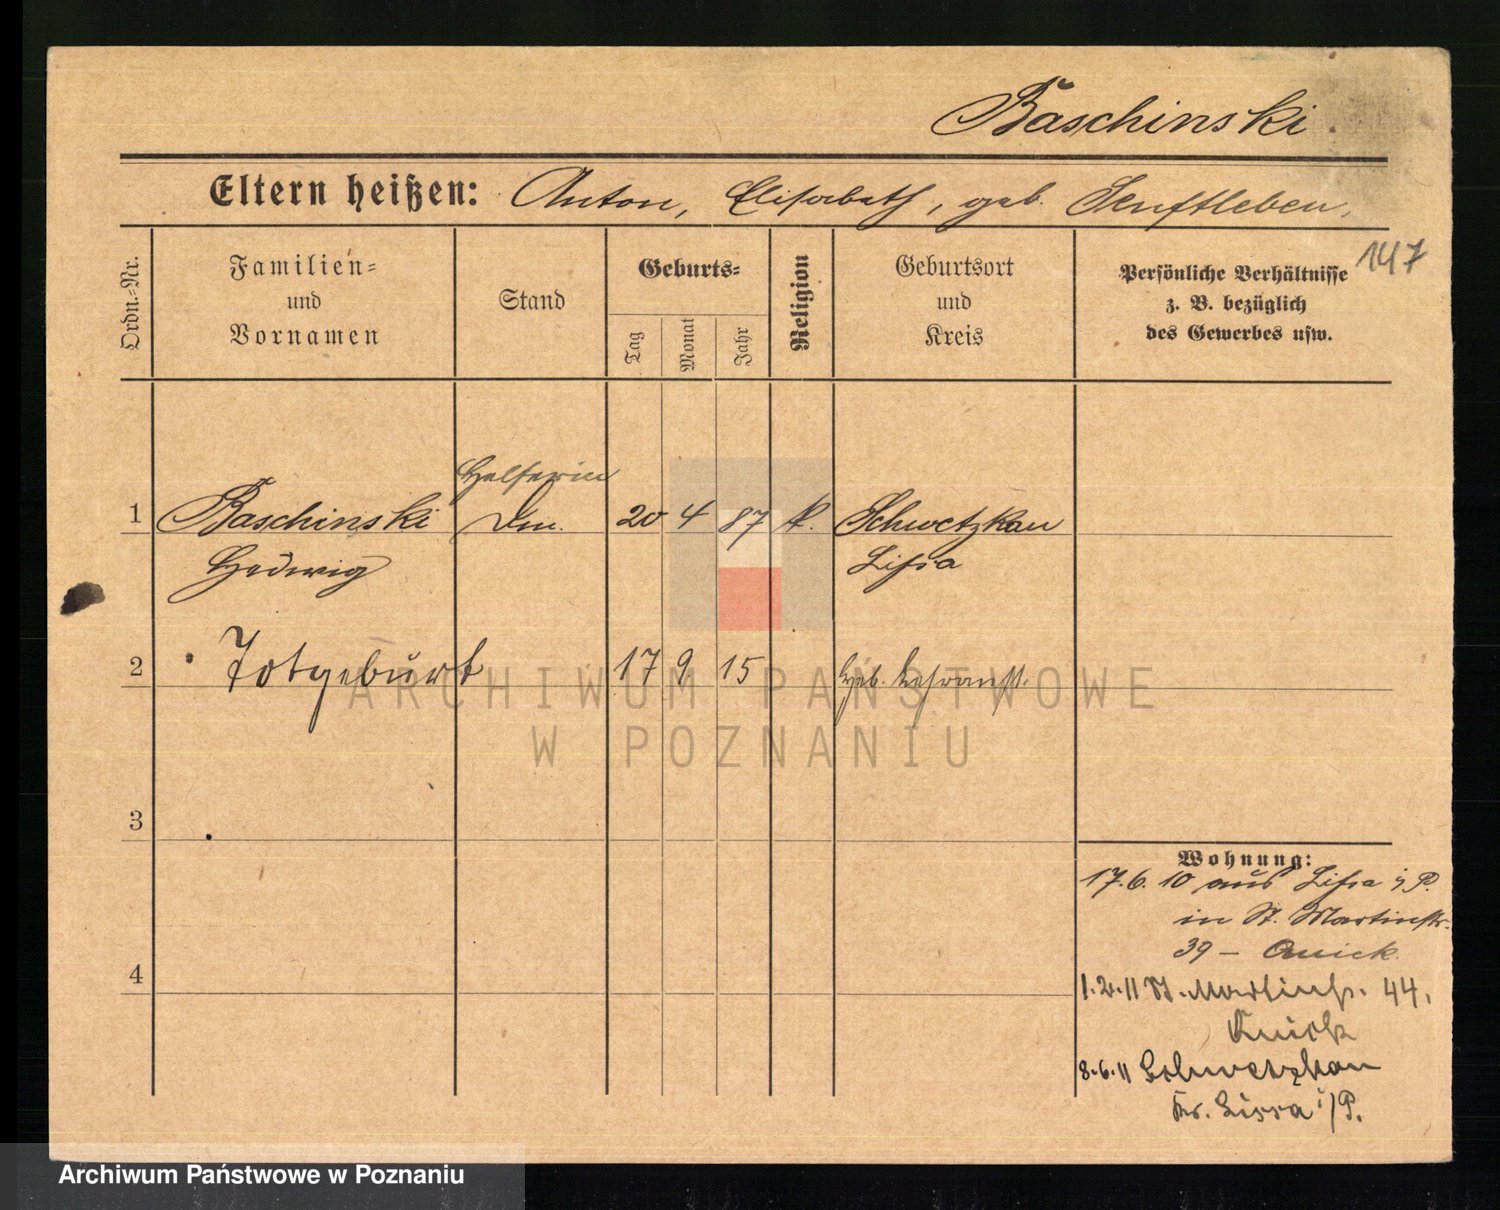 Baschinski.
Eltern heißen: Anton, Elisabeth, geb. Senftleben,
147
Ordn.-Nr.
Familien-
und
Vornamen
Stand
Geburts-
Tag
Monat
Jahr
Religion
Geburtsort
und
Kreis
Persönliche Verhältnisse
z. B. bezüglich
des Gewerbes usw.
Helferin
1 Baschinski 20 4 87 k. Schwetzkau
Hedwig Lissa
2 Totgeburt 17 9 15 Heb. Lehranst.
3
4
Wohnung:
17.6.10 aus Lissa i/P.
in St. Martinstr.
39 – Quick
1.2.11 St. Martinstr. 44,
Quick
8.6.11 Schwetzkau
Kr. Lissa i/P.
ARCHIWUM PAŃSTWOWE
W POZNANIU
Archiwum Państwowe w Poznaniu